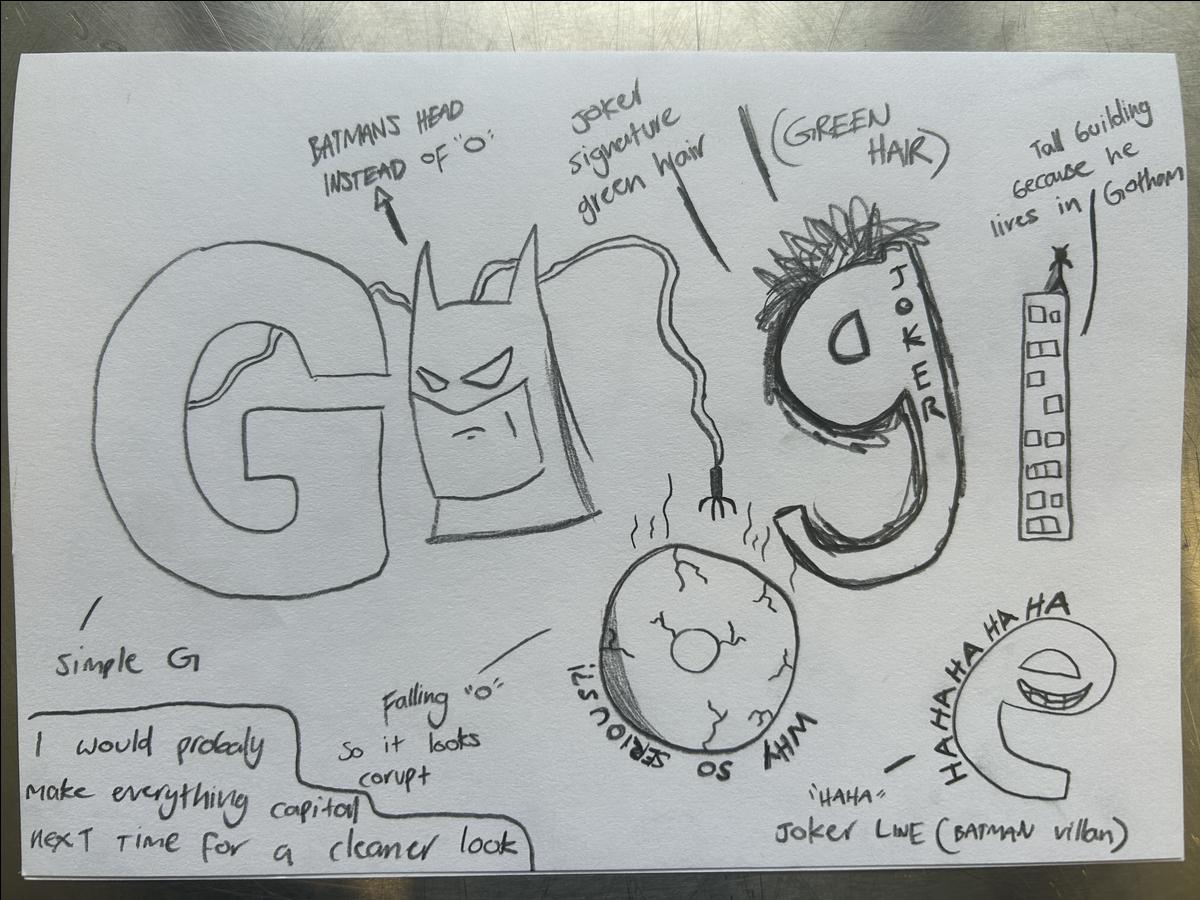 BATMANS HEAD
INSTEAD OF "O"
Joker
signature
green Hair
(GREEN
HAIR)
Tall building
because he
lives in Gotham
G
g
JOKER
e
Simple G
Falling "O"
So it looks
corupt
WHY SO SERIOUS?!
HAHAHAHAHA
"HAHA"
Joker LINE (BATMAN villan)
I would probaly
make everything capital
next time for a cleaner look